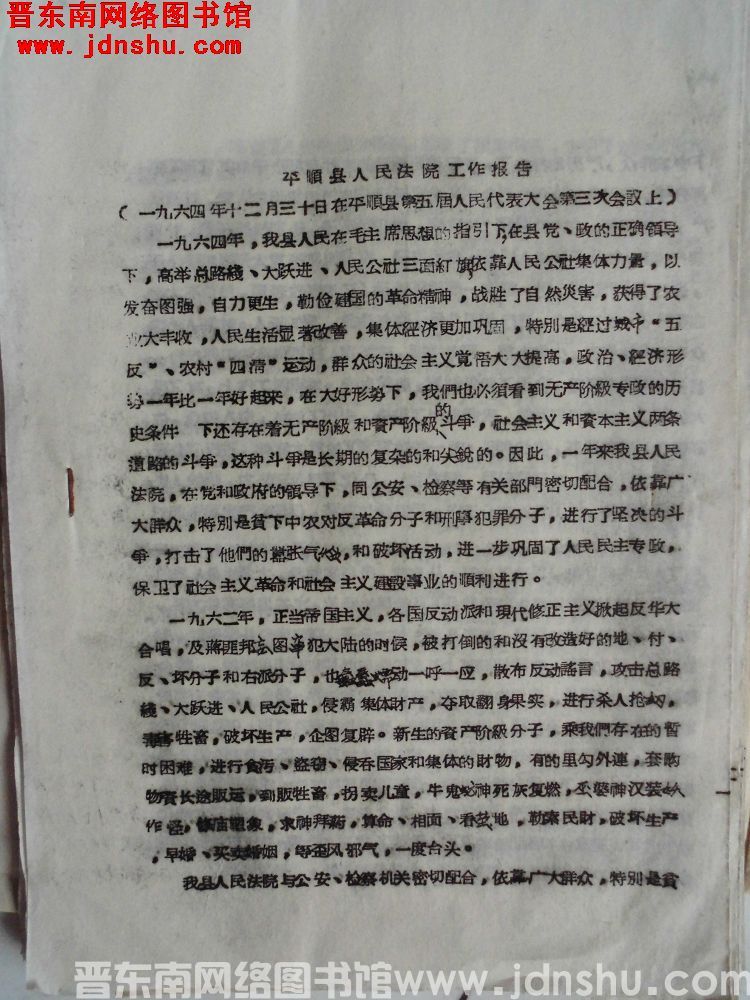 晋东南网络图书馆
www.jdnshu.com
平順县人民法院工作报告
(一九六四年十二月三十日在平順县第五届人民代表大会第三次会議上)
一九六四年,我县人民在毛主席思想的指引下,在县党、政的正确領导
下,高举总路綫、大跃进、人民公社三面紅旗,依靠人民公社集体力量,以
发奋图强,自力更生,勤俭建国的革命精神,战胜了自然災害,获得了农
业大丰收,人民生活显著改善,集体經济更加巩固,特別是經过城市“五
反”、农村“四清”运动,群众的社会主义覚悟大大提高,政治、經济形
势一年比一年好起来,在大好形势下,我們也必須看到无产阶級专政的历
史条件 下还存在着无产阶級和資产阶級的斗爭,社会主义和資本主义两条
道路的斗爭,这种斗爭是长期的复杂的和尖銳的。因此,一年来我县人民
法院,在党和政府的領导下,同公安、检察等有关部門密切配合,依靠广
大群众,特別是貧下中农对反革命分子和刑事犯罪分子,进行了坚决的斗
爭,打击了他們的囂张气焰,和破坏活动,进一步巩固了人民民主专政,
保卫了社会主义革命和社会主义建設事业的順利进行。
一九六二年,正当帝国主义,各国反动派和現代修正主义掀起反华大
合唱,及蔣匪邦妄图窜犯大陆的时候,被打倒的和沒有改造好的地、付、
反、坏分子和右派分子,也蠢蠢动一呼一应,散布反动謠言,攻击总路
綫、大跃进、人民公社,侵霸集体財产,夺取翻身果实,进行杀人抢劫,
毒害牲畜,破坏生产,企图复辟。新生的資产阶級分子,乘我們存在的暂
时困难,进行貪污、盜窃、侵吞国家和集体的財物,有的里勾外連,套购
物資长途販运,到販牲畜,拐卖儿童,牛鬼蛇神死灰复燃,巫婆神汉装妖
作怪,修庙塑象,求神拜葯,算命、相面、看坟地,勒索民財,破坏生产
,早婚、买卖婚姻,等歪风邪气,一度台头。
我县人民法院与公安、检察机关密切配合,依靠广大群众,特別是貧
晋东南网络图书馆www.jdnshu.com